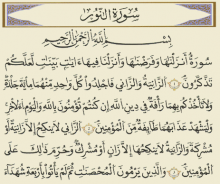 سُورَةُ النُّورِ
بِسْمِ اللَّهِ الرَّحْمَٰنِ الرَّحِيمِ
سُورَةٌ أَنزَلْنَٰهَا وَفَرَضْنَٰهَا وَأَنزَلْنَا فِيهَآ ءَايَٰتٍۭ بَيِّنَٰتٍ لَّعَلَّكُمْ
تَذَكَّرُونَ ١ ٱلزَّانِيَةُ وَٱلزَّانِى فَٱجْلِدُوا۟ كُلَّ وَٰحِدٍ مِّنْهُمَا مِا۟ئَةَ جَلْدَةٍ
وَلَا تَأْخُذْكُم بِهِمَا رَأْفَةٌ فِى دِينِ ٱللَّهِ إِن كُنتُمْ تُؤْمِنُونَ بِٱللَّهِ وَٱلْيَوْمِ ٱلْءَاخِرِ
وَلْيَشْهَدْ عَذَابَهُمَا طَآئِفَةٌ مِّنَ ٱلْمُؤْمِنِينَ ٢ ٱلزَّانِى لَا يَنكِحُ إِلَّا زَانِيَةً أَوْ
مُشْرِكَةً وَٱلزَّانِيَةُ لَا يَنكِحُهَآ إِلَّا زَانٍ أَوْ مُشْرِكٌ وَحُرِّمَ ذَٰلِكَ عَلَى
ٱلْمُؤْمِنِينَ ٣ وَٱلَّذِينَ يَرْمُونَ ٱلْمُحْصَنَٰتِ ثُمَّ لَمْ يَأْتُوا۟ بِأَرْبَعَةِ شُهَدَآءَ